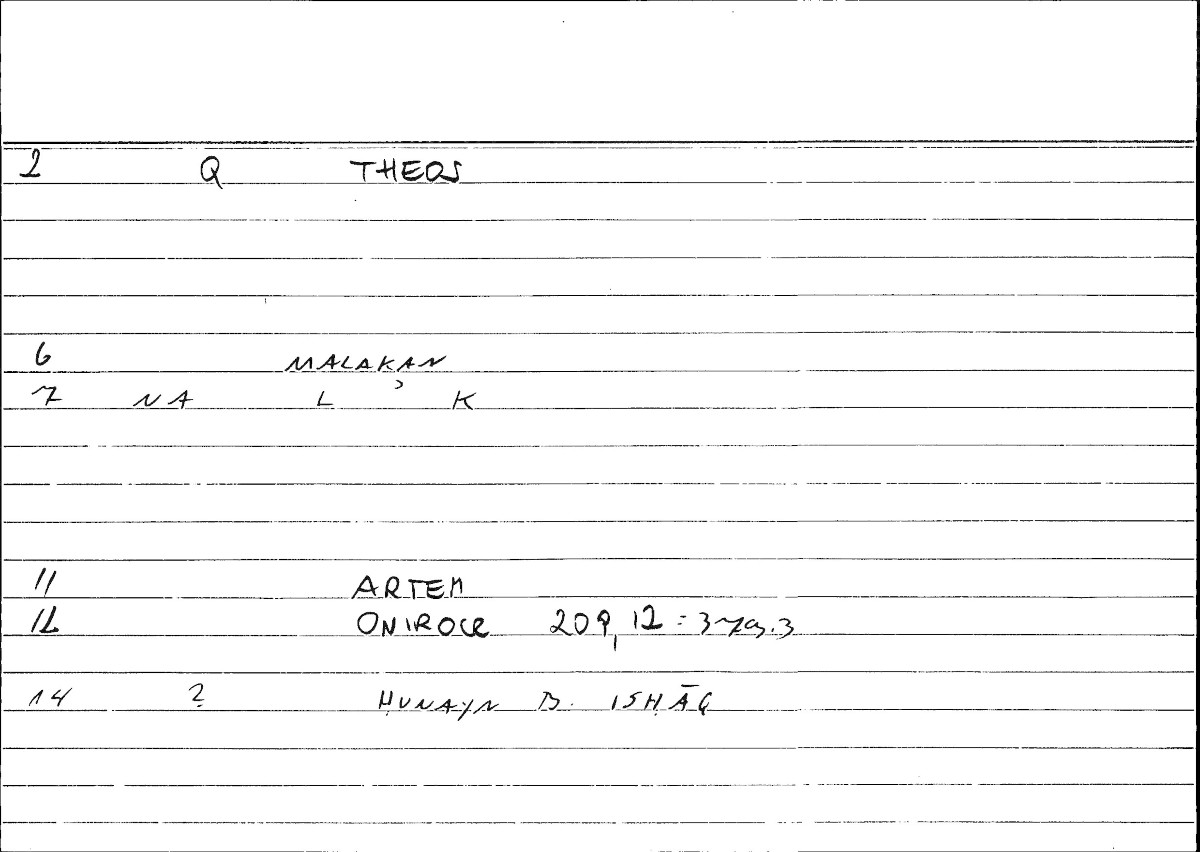 2 Q THEOS
6 MALAKAN
7 NA L ʾ K
11 ARTEM
12 ONIROCR 209,12 = 379.3
14 2 ḤUNAYN B. ISḤĀQ